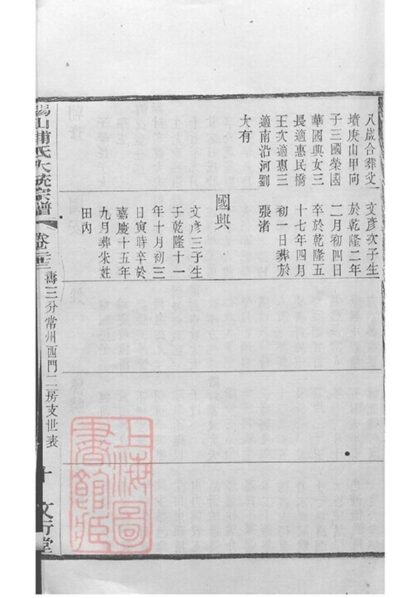 八歲合葬父
墳庚山甲向
子三國榮國
華國興女三
長適惠民橋
王次適惠三
適南沿河劉
大有
文彥次子生
於乾隆二年
二月初四日
卒於乾隆五
十七年四月
初一日葬於
張渚
國興
文彥三子生
于乾隆十一
年十月初三
日寅時卒於
嘉慶十五年
九月葬朱姓
田內
錫山浦氏大統宗譜
卷
壽三分常州西門二房支世表
十
文行堂
上海圖
書館藏